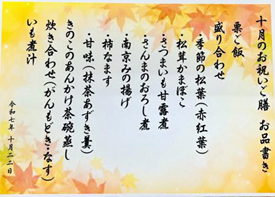 十月のお祝いご膳 お品書き
栗ご飯
盛り合わせ
・季節の松葉(赤紅葉)
・松茸かまぼこ
・さつまいも甘露煮
・さんまのおろし煮
・南京みの揚げ
・柿なます
・甘味(抹茶あずき羹)
きのこのあんかけ茶碗蒸し
炊き合わせ(がんもどき・なす)
いも煮汁
令和七年 十月二三日